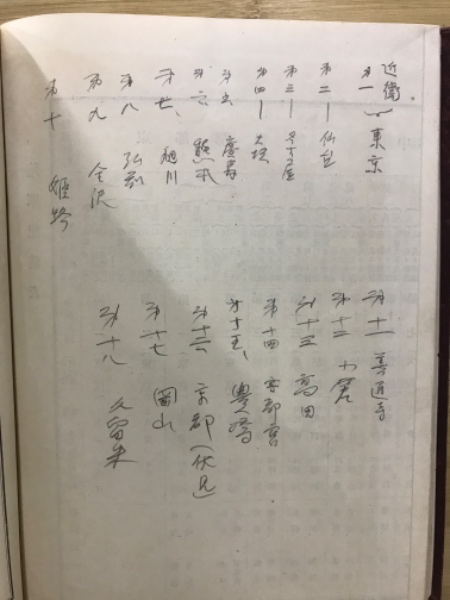 近衛
第一 〉東京
第二ー仙台
第三ー名古屋
第四ー大坂
第五 廣島
第六 熊本
第七、旭川
第八 弘前
第九 金沢
第十 姫路
第十一 善通寺
第十二 小倉
第十三 高田
第十四 宇都宮
第十五、豊橋
第十六 京都（伏見）
第十七 岡山
第十八 久留米